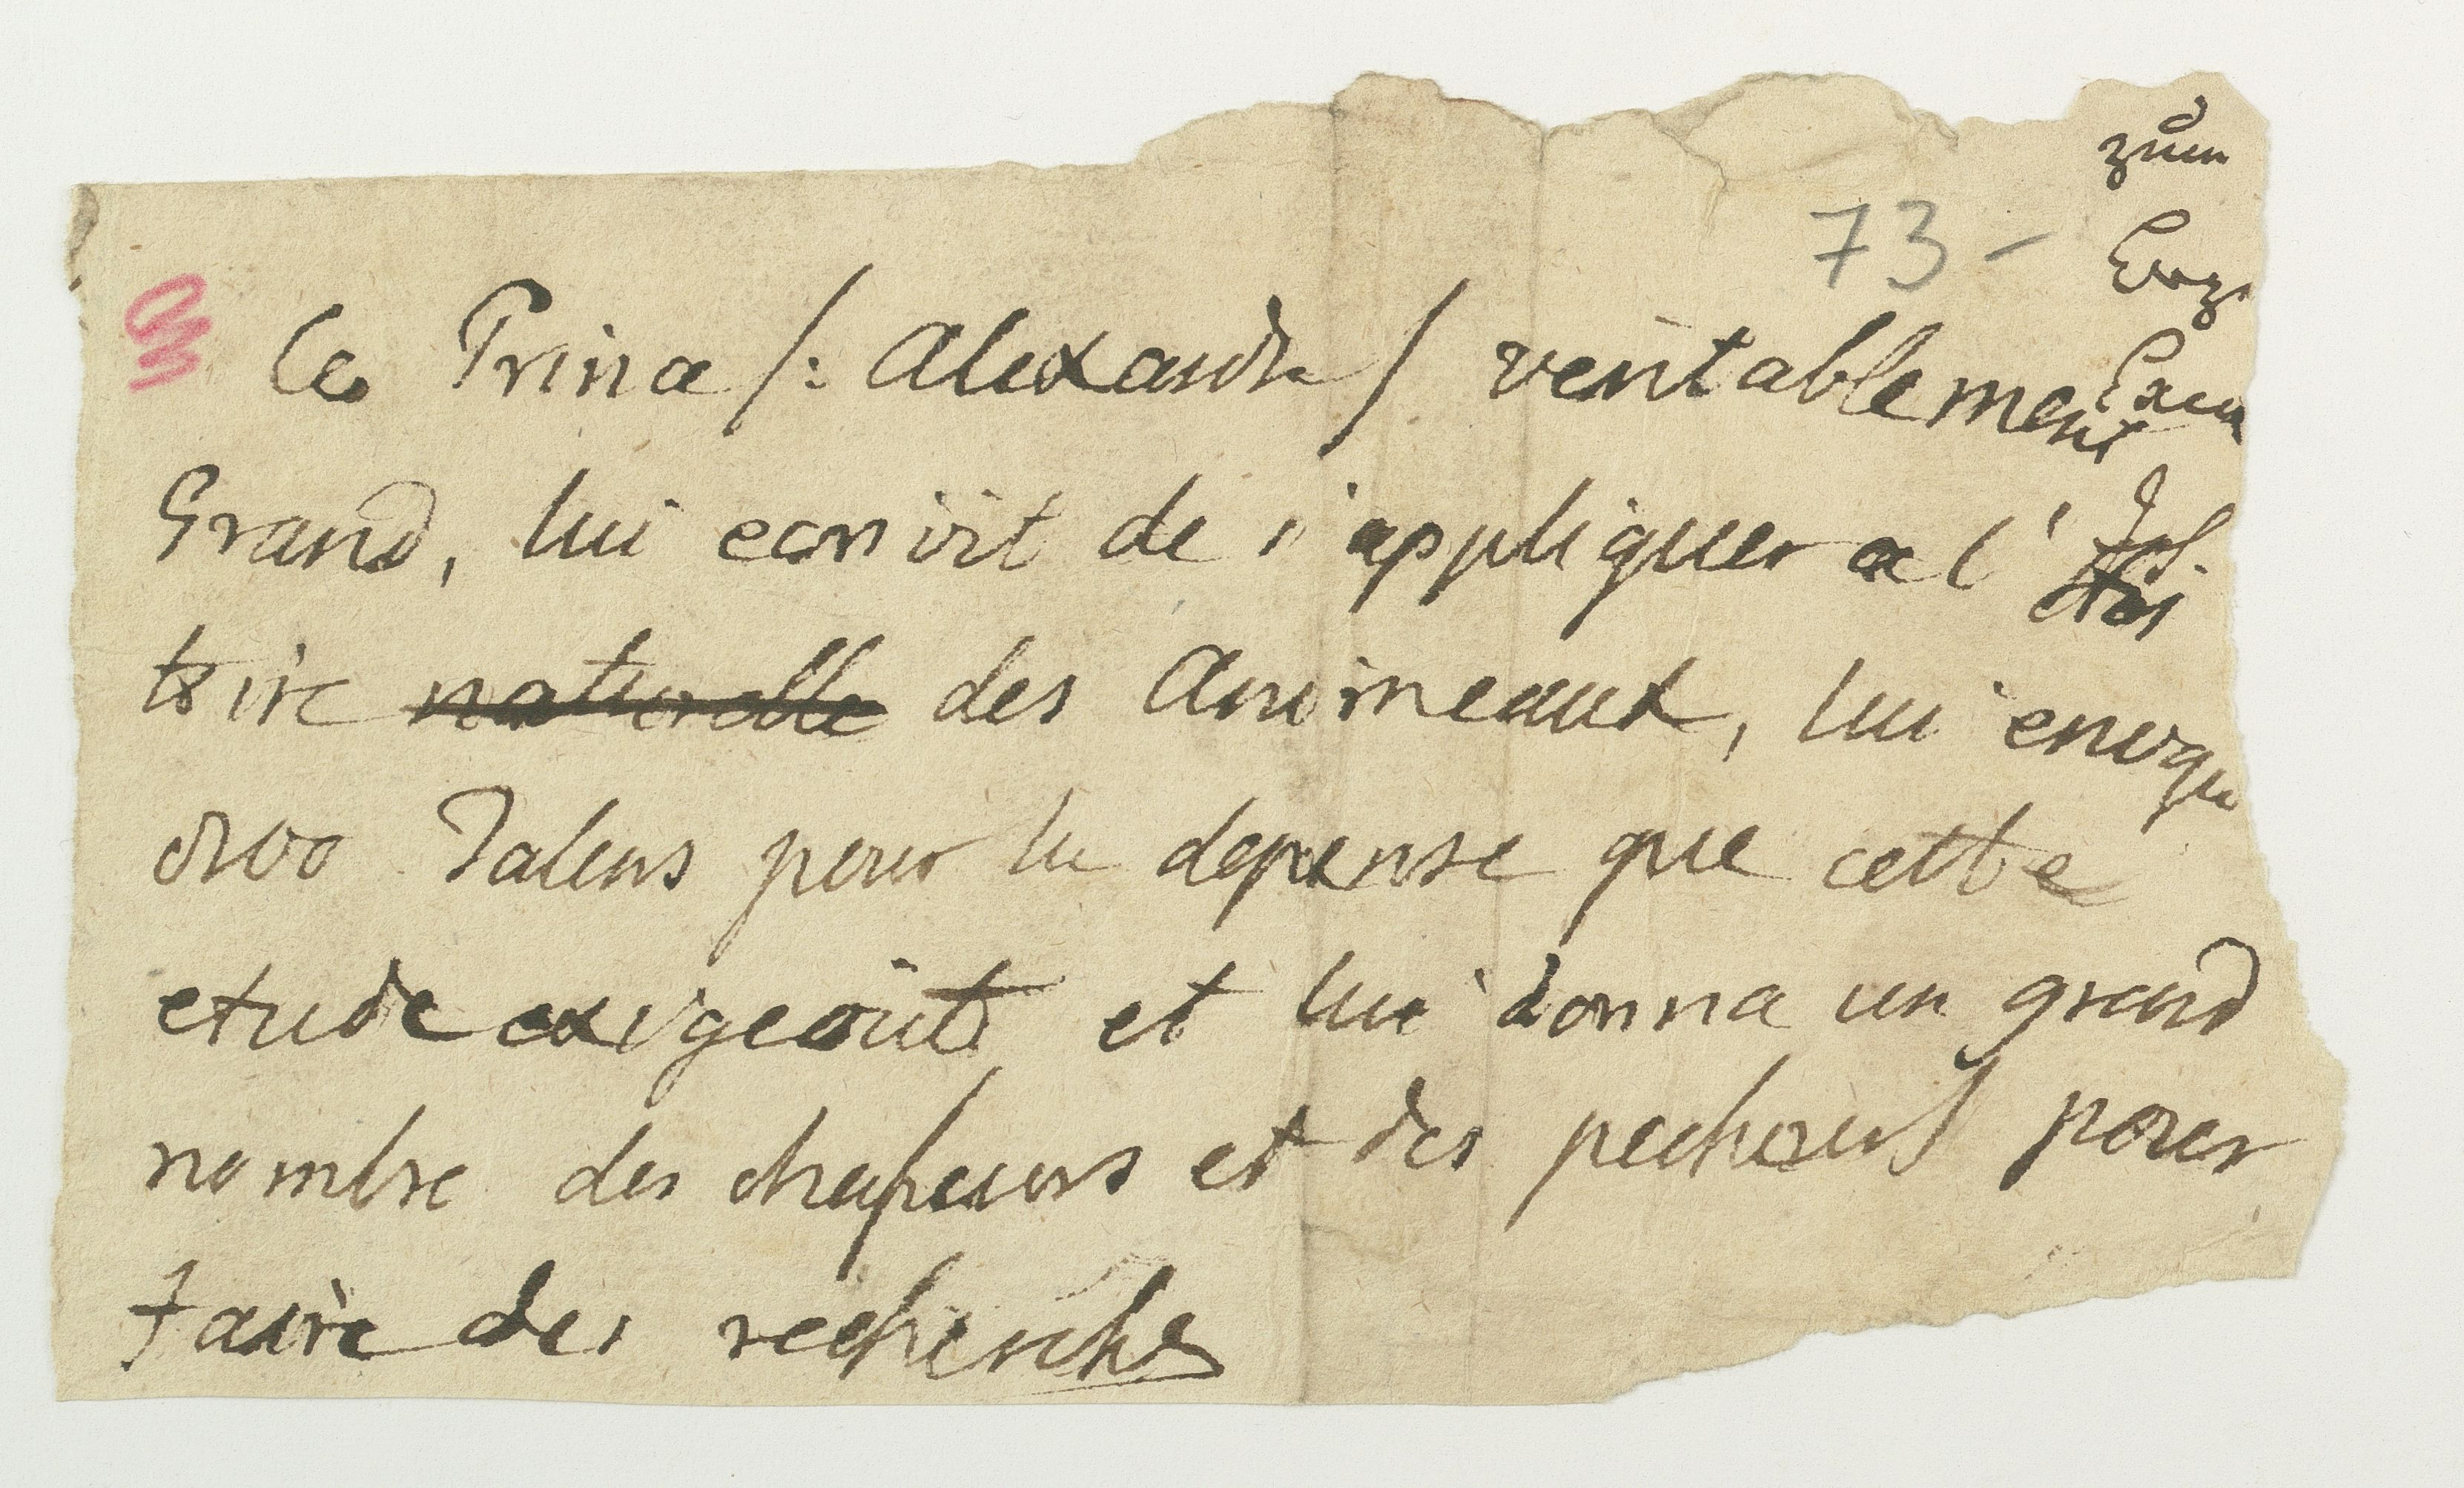 zum
73 -
Erz
Exem
Ce Prince /: Alexandre / veritablement
Grand, lui ecrivit de s'appliquer a l'His
toire naturelle des Animeaux, lui envoya
800 Talens pour la depense que cette
etude exigeoit et lui donna un grand
nombre des chasseurs et des pecheurs pour
faire des recherches